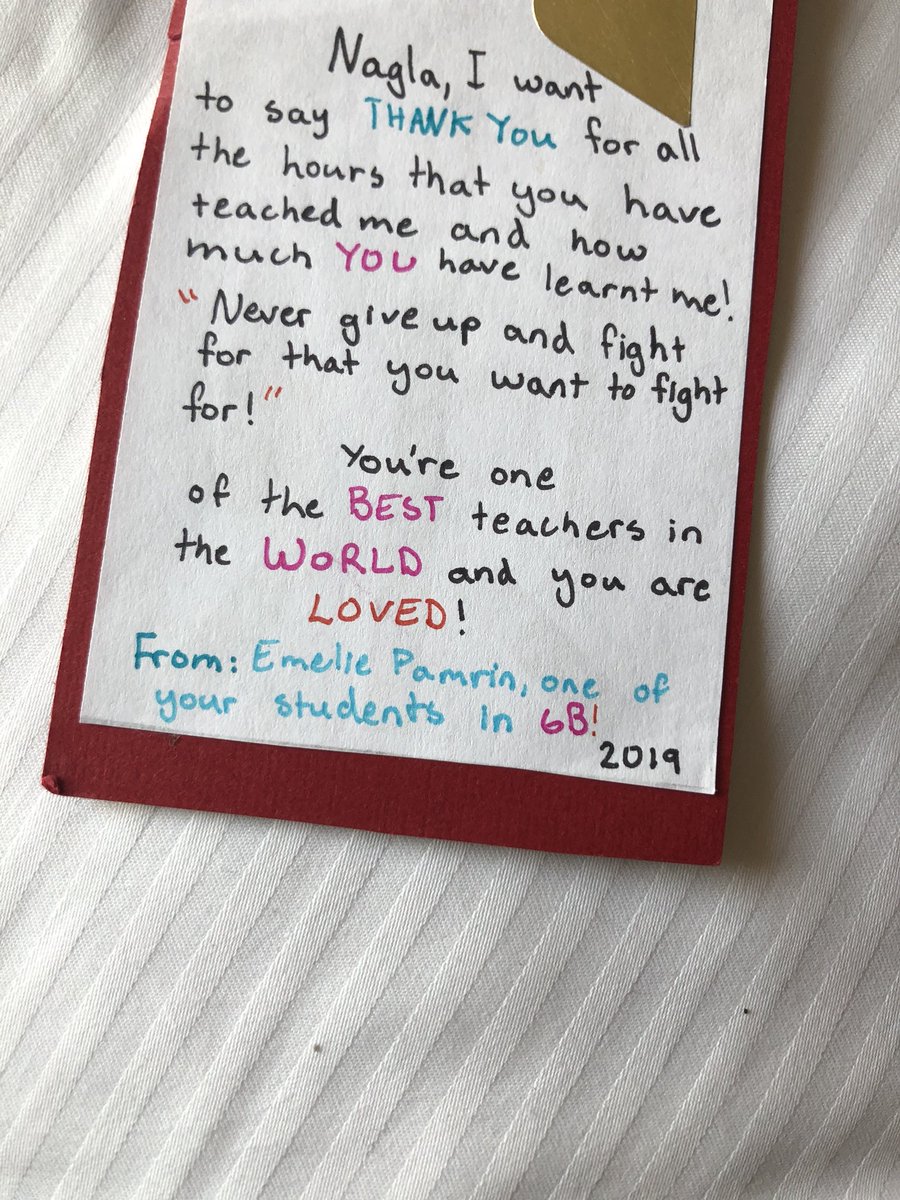 Nagla, I want
to say THANK YOU for all
the hours that you have
teached me and how
much YOU have learnt me!
"Never give up and fight
for that you want to fight
for!"
You're one
of the BEST teachers in
the WORLD and you are
LOVED!
From: Emelie Pamrin, one of
your students in 6B!
2019